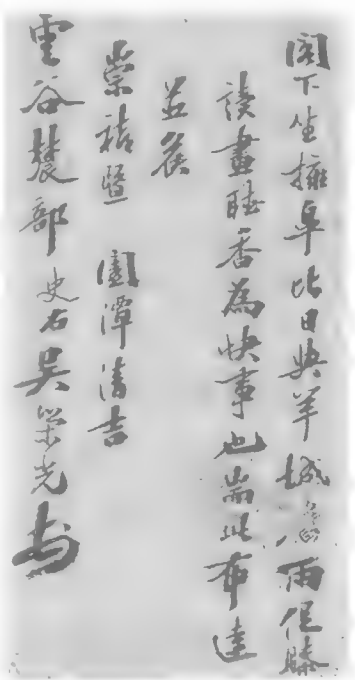 閣下坐擁皋比日與羊城詹雨促膝
讀畫聽香為快事也耑此布達
並候
崇禧暨 圖潭清吉
雲谷農部史右吳榮光頓